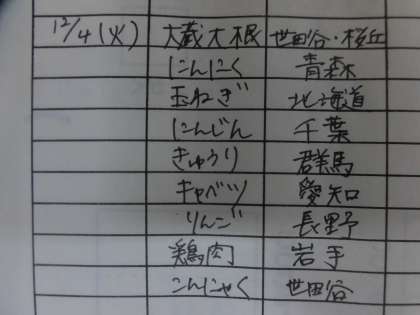 12/4(火) 大蔵大根 世田谷・桜丘
にんにく 青森
玉ねぎ 北海道
にんじん 千葉
きゅうり 群馬
キャベツ 愛知
りんご 長野
鶏肉 岩手
こんにゃく 世田谷